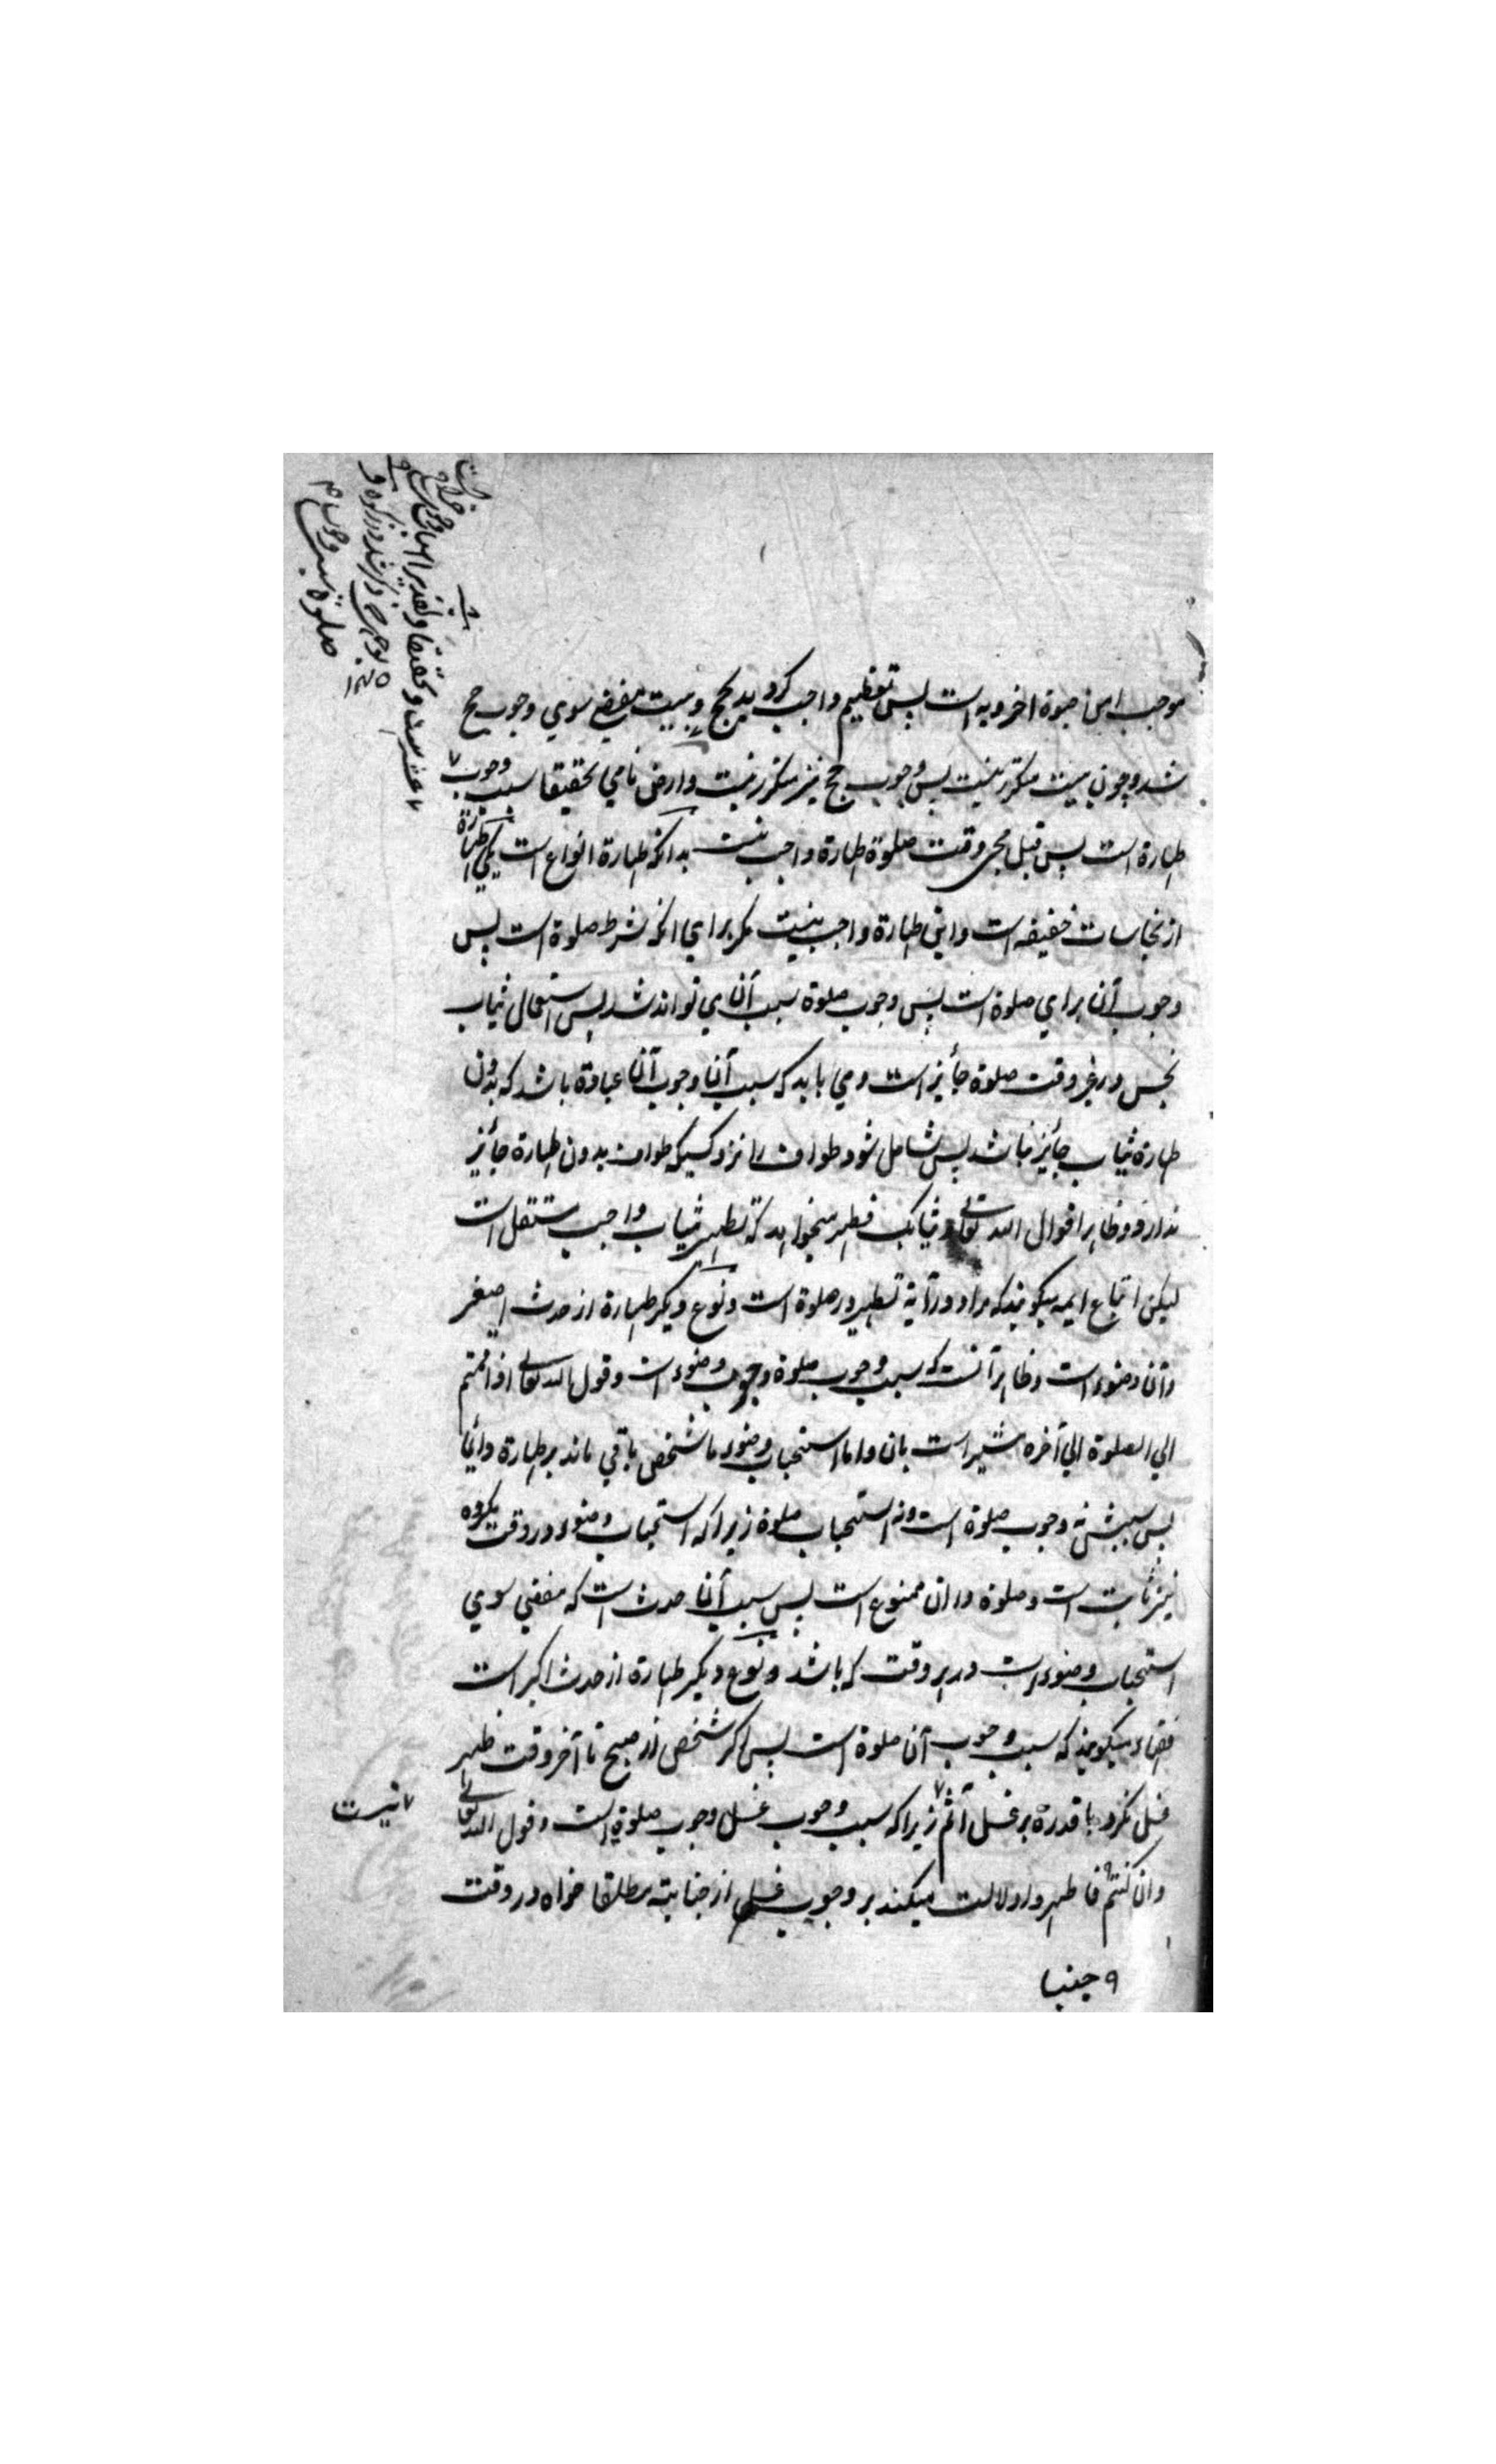 موجب امن حیوة اخرویه است پس تعظیم واجب کرد بد بحج و بیت مفضی سوی وجوب حج
شد و چون بیت متکرر نیست پس وجوب حج نیز متکرر نیست و ارض نامی تحقیقا سبب وجوب
طهارة است پس قبل مجی وقت صلوة طهارة واجب نیست بدانکه طهارة انواع است یکی طهارة
از نجاسات خفیفه است و این طهارة واجب نیست مکر برای انکه شرط صلوة است پس
وجوب آن برای صلوة است پس وجوب صلوة سبب آن می تواند شد پس استعمال ثیاب
نجس در غیر وقت صلوة جأیز است و می باید که سبب آن وجوب آن عبادة باشد که بدون
طهارة ثیاب جأیز نباشد پس شامل شود طواف را نزد کسیکه طواف بدون طهارة جأیز
ندارد و ظاهرا قول الله تعالی و ثیابک فطهر میخواهد که تطهیر ثیاب واجب مستقل است
لیکن اتباع ایمه میکویند که مراد در آیة تطهیر در صلوة است و نوع دیکر طهارة از حدث اصغر
و آن وضوء است و ظاهر آنست که سبب وجوب صلوة وجوب وضوء است و قول الله تعالی اذا قمتم
الی الصلوة الی آخره مشیر است بان و اما استحباب وضوء تا شخص باقی ماند بر طهارة دأیما
پس سببش نه وجوب صلوة است و نه استحباب صلوة زیرا که استحباب وضوء در وقت مکروه
نیز ثابت است و صلوة در ان ممنوع است پس سبب آن حدث است که مفضی سوی
استحباب وضوء است در هر وقت که باشد و نوع دیکر طهارة از حدث اکبر است
فقهاء میکویند که سبب وجوب آن صلوة است پس اکر شخص از صبح تا آخر وقت ظهر
غسل نکرد با قدرة بر غسل آثم زیرا که سبب وجوب غسل وجوب صلوة است و قول الله تعالی
نیست
وان کنتم فاطهروا دلالت میکند بر وجوب غسل از جنابته مطلقا خواه در وقت
۹ جنبا
عشر است و تحقیقا و تقدیرا
صلوة سبب وجوب